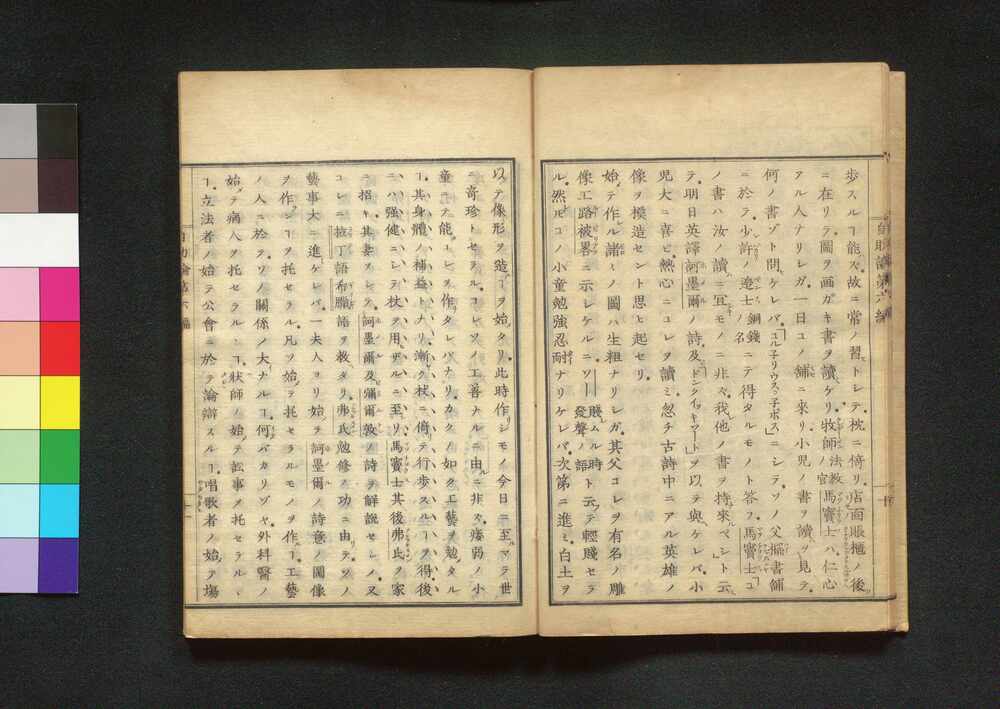 歩スルヿ能ハズ故ニ常ノ習トシテ枕ニ倚リ店面賬櫃ノ後
ニ在リテ圖ヲ画ガキ書ヲ讀ケリ牧師法教ノ官馬竇士ハ仁心
アル人ナリシガ一日コノ舗ニ來リ小児ノ書ヲ讀ヲ見テ
何ノ書ゾト問ケレバ「コル子リウス子ポス」ニシテソノ父摳書舗
ニ於テ少許ノ遼士銅錢ノ名ニテ得タルモノト答フ馬竇士コ
ノ書ハ汝ノ讀ニ宜キモノニ非ズ我他ノ書ヲ持來ベシト云
テ明日英譯訶墨爾ノ詩及ドンクイッキソートヲ以テ與ケレバ小
児大ニ喜ビ熱心ニコレヲ讀ミ忽チ古詩中ニアル英雄ノ
像ヲ摸造セント思ヒ起セリ
始テ作レル諸ノ圖ハ生粗ナリシガ其父コレヲ有名ノ雕
像工路被畧ニ示シケルニソー賤ムル時發聲ノ語ト云フテ輕賤セラ
ル然ルニコノ小童勉強忍耐ナリケレバ次第ニ進ミ白土ヲ
以テ像形ヲ造ルヿヲ始タリ此時作リシモノ今日ニ至マデ世
ニ奇珍トセラルコレソノ工善ナルニ由ルニ非ズ痿弱ノ小
童ニシテ能コレヲ作タレバナリカクノ如ク工藝ヲ勉タル
ヿ其身體ノ補益トナリ漸ク杖ニ倚テ行歩スルヿヲ得後
ニハ強健ニシテ杖ヲ用ザルニ至リ馬竇士其後弗氏ヲ家
ニ招キ其妻ヲシテ訶墨爾及彌爾敦ノ詩ヲ解説セシメ又
コレニ拉丁語希臘語ヲ教タリ弗氏勉修ノ功ニ由テソノ
藝事大ニ進ケレバ一夫人ヨリ始テ訶墨爾ノ詩意ノ圖像
ヲ作ルヿヲ托セラル凡ソ始テ托セラルモノヲ作ルヿ工藝
ノ人ニ於テソノ關係ノ大ナルヿ何バカリゾヤ外科醫ノ
始テ病人ヲ托セラルヽヿ狀師ノ始テ訟事ヲ托セラルヽ
ヿ立法者ノ始テ公會ニ於テ論辯スルヿ唱歌者ノ始テ場